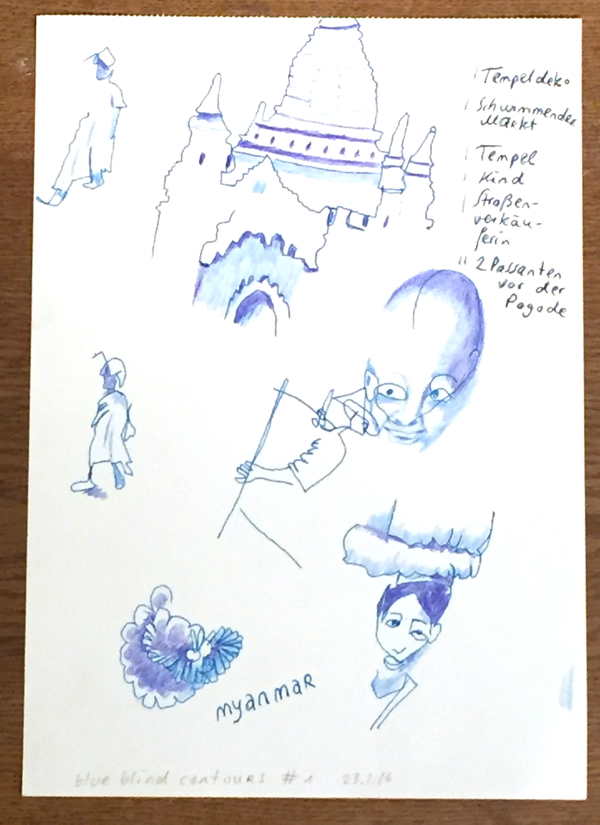 Tempeldeko
Schwimmender
Markt
Tempel
Kind
Straßen-
verkäu-
ferin
2 Passanten
vor der
Pagode
myanmar
blue blind contours #1 23.1.16